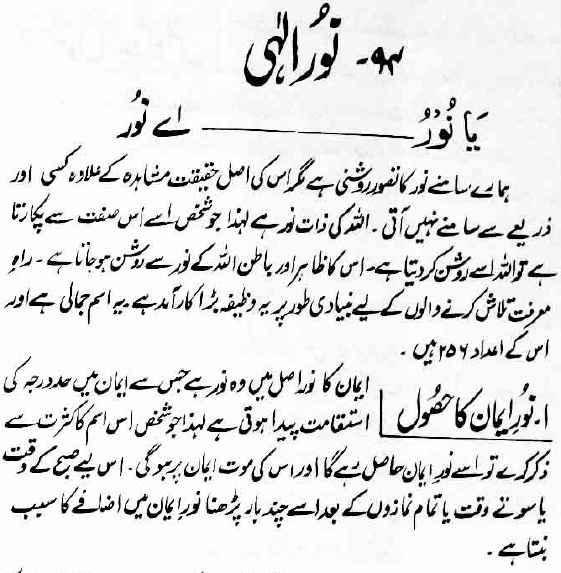 ۹۴۔ نُورِ الٰہی
یَا نُوْرُ ــــــــــــ اے نُور
ہمارے سامنے نور کا تصور روشنی ہے مگر اس کی اصل حقیقت مشاہدہ کے علاوہ کسی اور
ذریعے سے سامنے نہیں آتی ۔ اللہ کی ذات نور ہے لہٰذا جو شخص اسے اس صفت سے پکارتا
ہے تو اللہ اسے روشن کر دیتا ہے۔ اس کا ظاہر اور باطن اللہ کے نور سے روشن ہو جاتا ہے ۔ راہِ
معرفت تلاش کرنے والوں کے لیے بنیادی طور پر یہ وظیفہ بڑا کارآمد ہے یہ اسم جمالی ہے اور
اس کے اعداد ۲۵۶ ہیں ۔
۱۔ نُورِ ایمان کا حصُول
ایمان کا نور اصل میں وہ نور ہے جس سے ایمان میں حد درجہ کی
استقامت پیدا ہوتی ہے لہذا جو شخص اس اسم کا کثرت سے
ذکر کرے تو اسے نورِ ایمان حاصل رہے گا اور اس کی موت ایمان پر ہو گی ۔ اس لیے صبح کے وقت
یا سوتے وقت یا تمام نمازوں کے بعد اسے چند بار پڑھنا نورِ ایمان میں اضافے کا سبب
بنتا ہے ۔